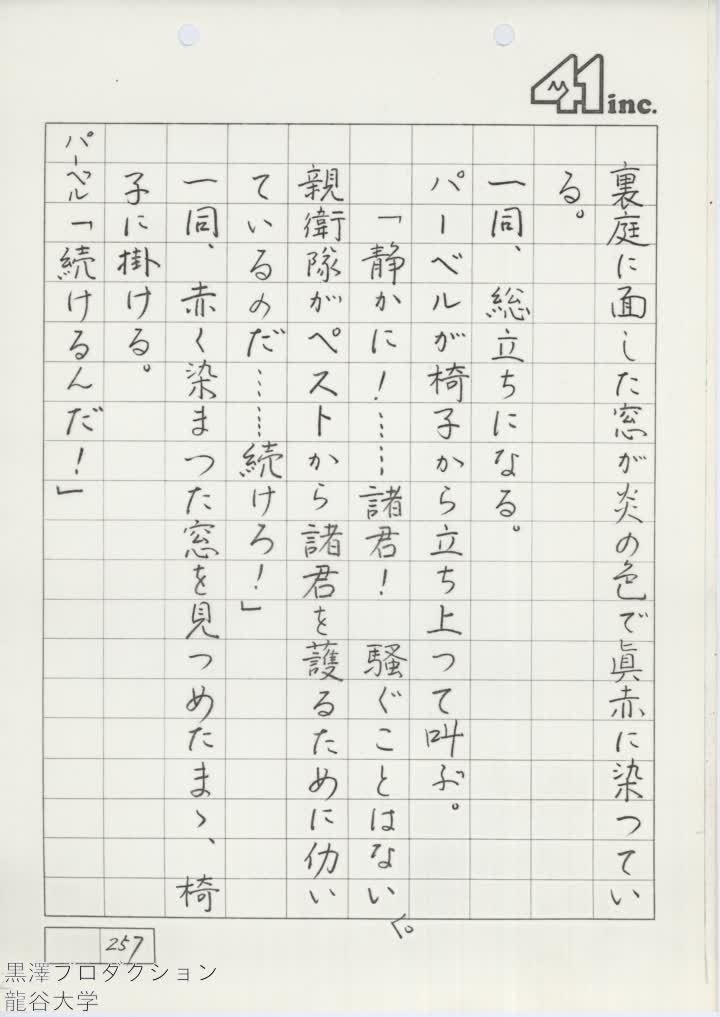 41 inc.
裏庭に面した窓が炎の色で眞赤に染つてい
る。
一同、総立ちになる。
パーベルが椅子から立ち上つて叫ぶ。
「静かに！……諸君！　騒ぐことはない。
親衛隊がペストから諸君を護るために仂い
ているのだ……続けろ！」
一同、赤く染まつた窓を見つめたまゝ、椅
子に掛ける。
パーベル「続けるんだ！」
257
黒澤プロダクション
龍谷大学